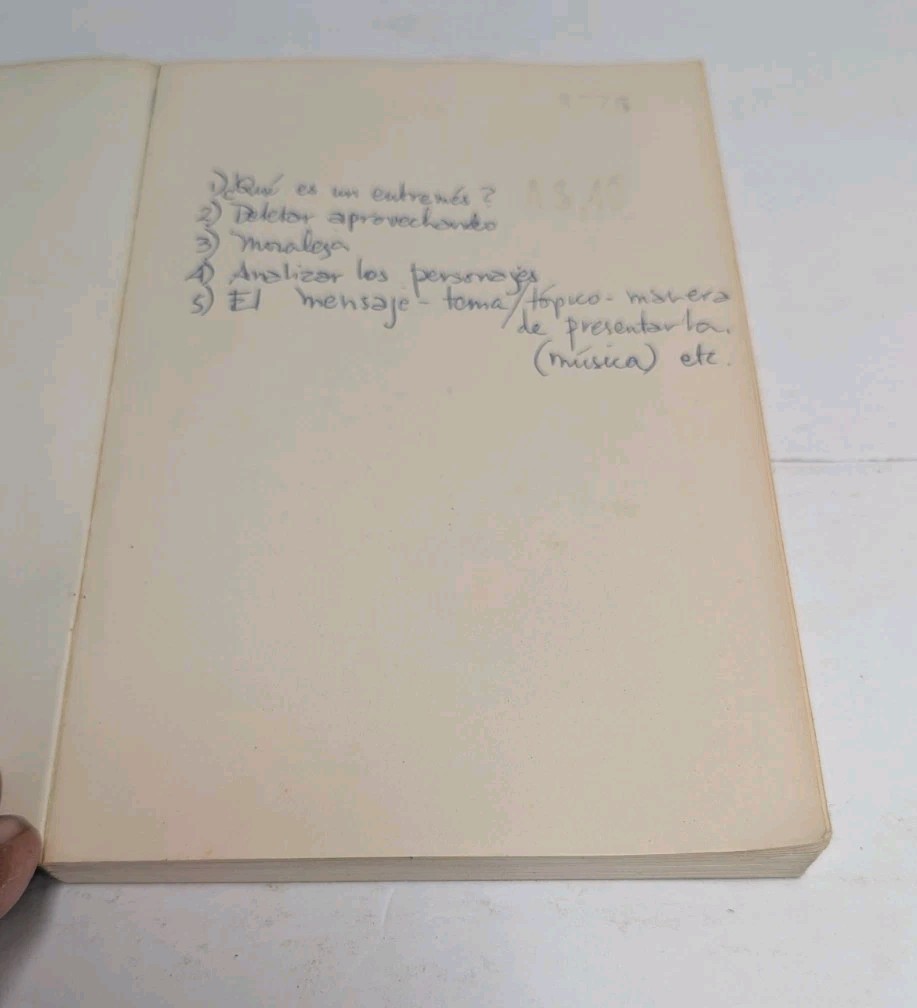 1) ¿Qué es un entremés?
2) Deletar aprovechando
3) Moraleja
4) Analizar los personajes
5) El mensaje - tema/tópico - manera
de presentarla.
(música) etc.